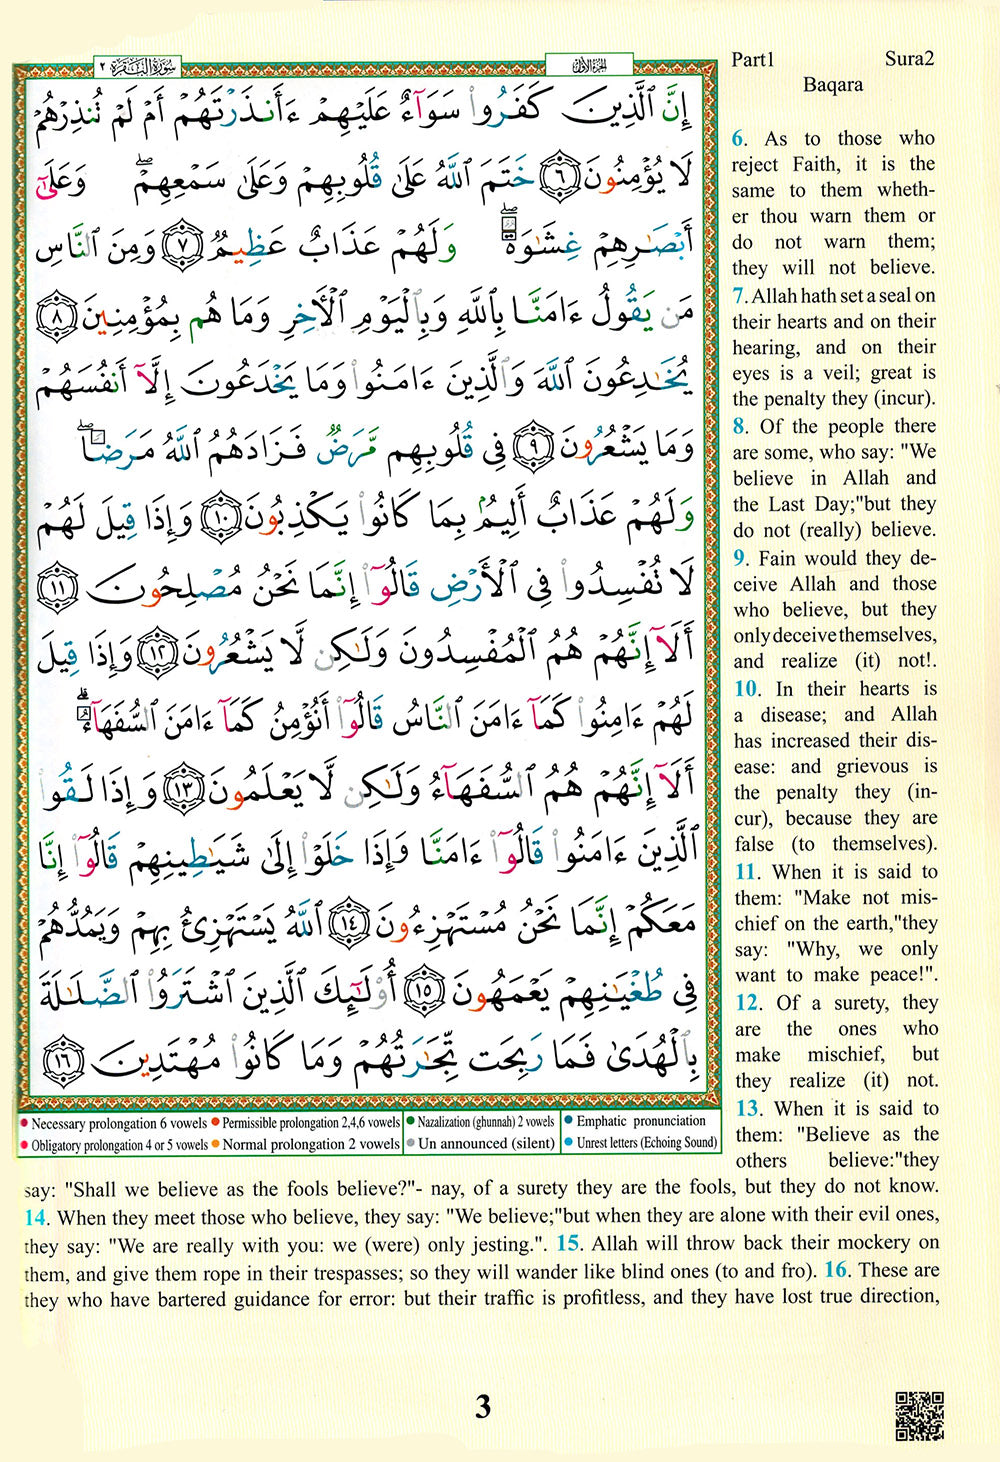 سُورَةُ البَقَرَة ٢
الجزء الأول
إِنَّ ٱلَّذِينَ كَفَرُوا۟ سَوَآءٌ عَلَيْهِمْ ءَأَنذَرْتَهُمْ أَمْ لَمْ تُنذِرْهُمْ
لَا يُؤْمِنُونَ ٦ خَتَمَ ٱللَّهُ عَلَىٰ قُلُوبِهِمْ وَعَلَىٰ سَمْعِهِمْ ۖ وَعَلَىٰٓ
أَبْصَـٰرِهِمْ غِشَـٰوَةٌ ۖ وَلَهُمْ عَذَابٌ عَظِيمٌ ٧ وَمِنَ ٱلنَّاسِ
مَن يَقُولُ ءَامَنَّا بِٱللَّهِ وَبِٱلْيَوْمِ ٱلْـَٔاخِرِ وَمَا هُم بِمُؤْمِنِينَ ٨
يُخَـٰدِعُونَ ٱللَّهَ وَٱلَّذِينَ ءَامَنُوا۟ وَمَا يَخْدَعُونَ إِلَّآ أَنفُسَهُمْ
وَمَا يَشْعُرُونَ ٩ فِى قُلُوبِهِم مَّرَضٌ فَزَادَهُمُ ٱللَّهُ مَرَضًا ۖ
وَلَهُمْ عَذَابٌ أَلِيمٌۢ بِمَا كَانُوا۟ يَكْذِبُونَ ١٠ وَإِذَا قِيلَ لَهُمْ
لَا تُفْسِدُوا۟ فِى ٱلْأَرْضِ قَالُوٓا۟ إِنَّمَا نَحْنُ مُصْلِحُونَ ١١
أَلَآ إِنَّهُمْ هُمُ ٱلْمُفْسِدُونَ وَلَـٰكِن لَّا يَشْعُرُونَ ١٢ وَإِذَا قِيلَ
لَهُمْ ءَامِنُوا۟ كَمَآ ءَامَنَ ٱلنَّاسُ قَالُوٓا۟ أَنُؤْمِنُ كَمَآ ءَامَنَ ٱلسُّفَهَآءُ ۗ
أَلَآ إِنَّهُمْ هُمُ ٱلسُّفَهَآءُ وَلَـٰكِن لَّا يَعْلَمُونَ ١٣ وَإِذَا لَقُوا۟
ٱلَّذِينَ ءَامَنُوا۟ قَالُوٓا۟ ءَامَنَّا وَإِذَا خَلَوْا۟ إِلَىٰ شَيَـٰطِينِهِمْ قَالُوٓا۟ إِنَّا
مَعَكُمْ إِنَّمَا نَحْنُ مُسْتَهْزِءُونَ ١٤ ٱللَّهُ يَسْتَهْزِئُ بِهِمْ وَيَمُدُّهُمْ
فِى طُغْيَـٰنِهِمْ يَعْمَهُونَ ١٥ أُو۟لَـٰٓئِكَ ٱلَّذِينَ ٱشْتَرَوُا۟ ٱلضَّلَـٰلَةَ
بِٱلْهُدَىٰ فَمَا رَبِحَت تِّجَـٰرَتُهُمْ وَمَا كَانُوا۟ مُهْتَدِينَ ١٦
Necessary prolongation 6 vowels Permissible prolongation 2,4,6 vowels Nazalization (ghunnah) 2 vowels Emphatic pronunciation
Obligatory prolongation 4 or 5 vowels Normal prolongation 2 vowels Un announced (silent) Unrest letters (Echoing Sound)
Part1 Sura2
Baqara
6. As to those who
reject Faith, it is the
same to them wheth-
er thou warn them or
do not warn them;
they will not believe.
7. Allah hath set a seal on
their hearts and on their
hearing, and on their
eyes is a veil; great is
the penalty they (incur).
8. Of the people there
are some, who say: "We
believe in Allah and
the Last Day;"but they
do not (really) believe.
9. Fain would they de-
ceive Allah and those
who believe, but they
only deceive themselves,
and realize (it) not!.
10. In their hearts is
a disease; and Allah
has increased their dis-
ease: and grievous is
the penalty they (in-
cur), because they are
false (to themselves).
11. When it is said to
them: "Make not mis-
chief on the earth,"they
say: "Why, we only
want to make peace!".
12. Of a surety, they
are the ones who
make mischief, but
they realize (it) not.
13. When it is said to
them: "Believe as the
others believe:"they
say: "Shall we believe as the fools believe?"- nay, of a surety they are the fools, but they do not know.
14. When they meet those who believe, they say: "We believe;"but when they are alone with their evil ones,
they say: "We are really with you: we (were) only jesting.". 15. Allah will throw back their mockery on
them, and give them rope in their trespasses; so they will wander like blind ones (to and fro). 16. These are
they who have bartered guidance for error: but their traffic is profitless, and they have lost true direction,
3